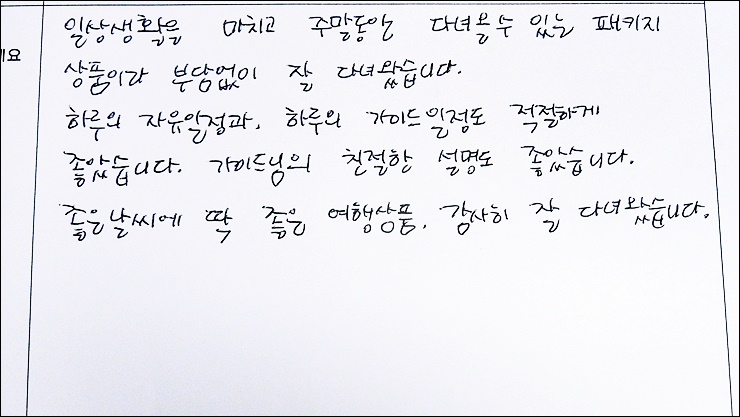 일상생활을 마치고 주말동안 다녀올 수 있는 패키지
ㅔ요
상품이라 부담없이 잘 다녀왔습니다.
하루의 자유일정과, 하루의 가이드일정도 적절하게
좋았습니다. 가이드님의 친절한 설명도 좋았습니다.
좋은날씨에 딱 좋은 여행상품, 감사히 잘 다녀왔습니다.